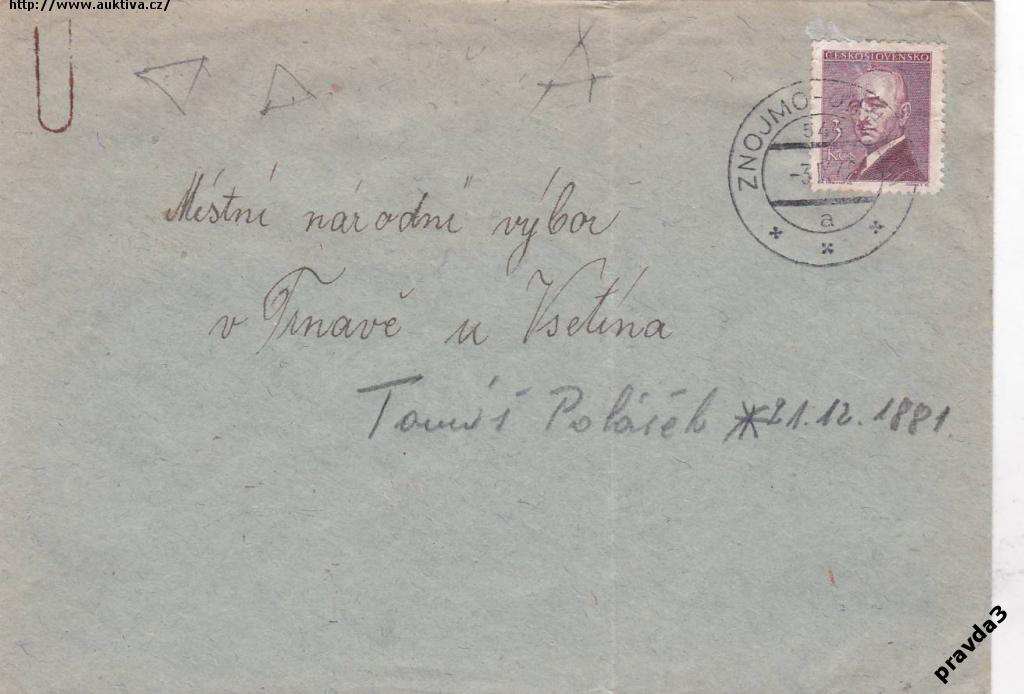 http://www.auktiva.cz/
ČESKOSLOVENSKO
ZNOJMO
3
Kčs
a
Místní národní výbor
v Trnavě u Vsetína
Tomáš Polášek *21.12.1881.
pravda3